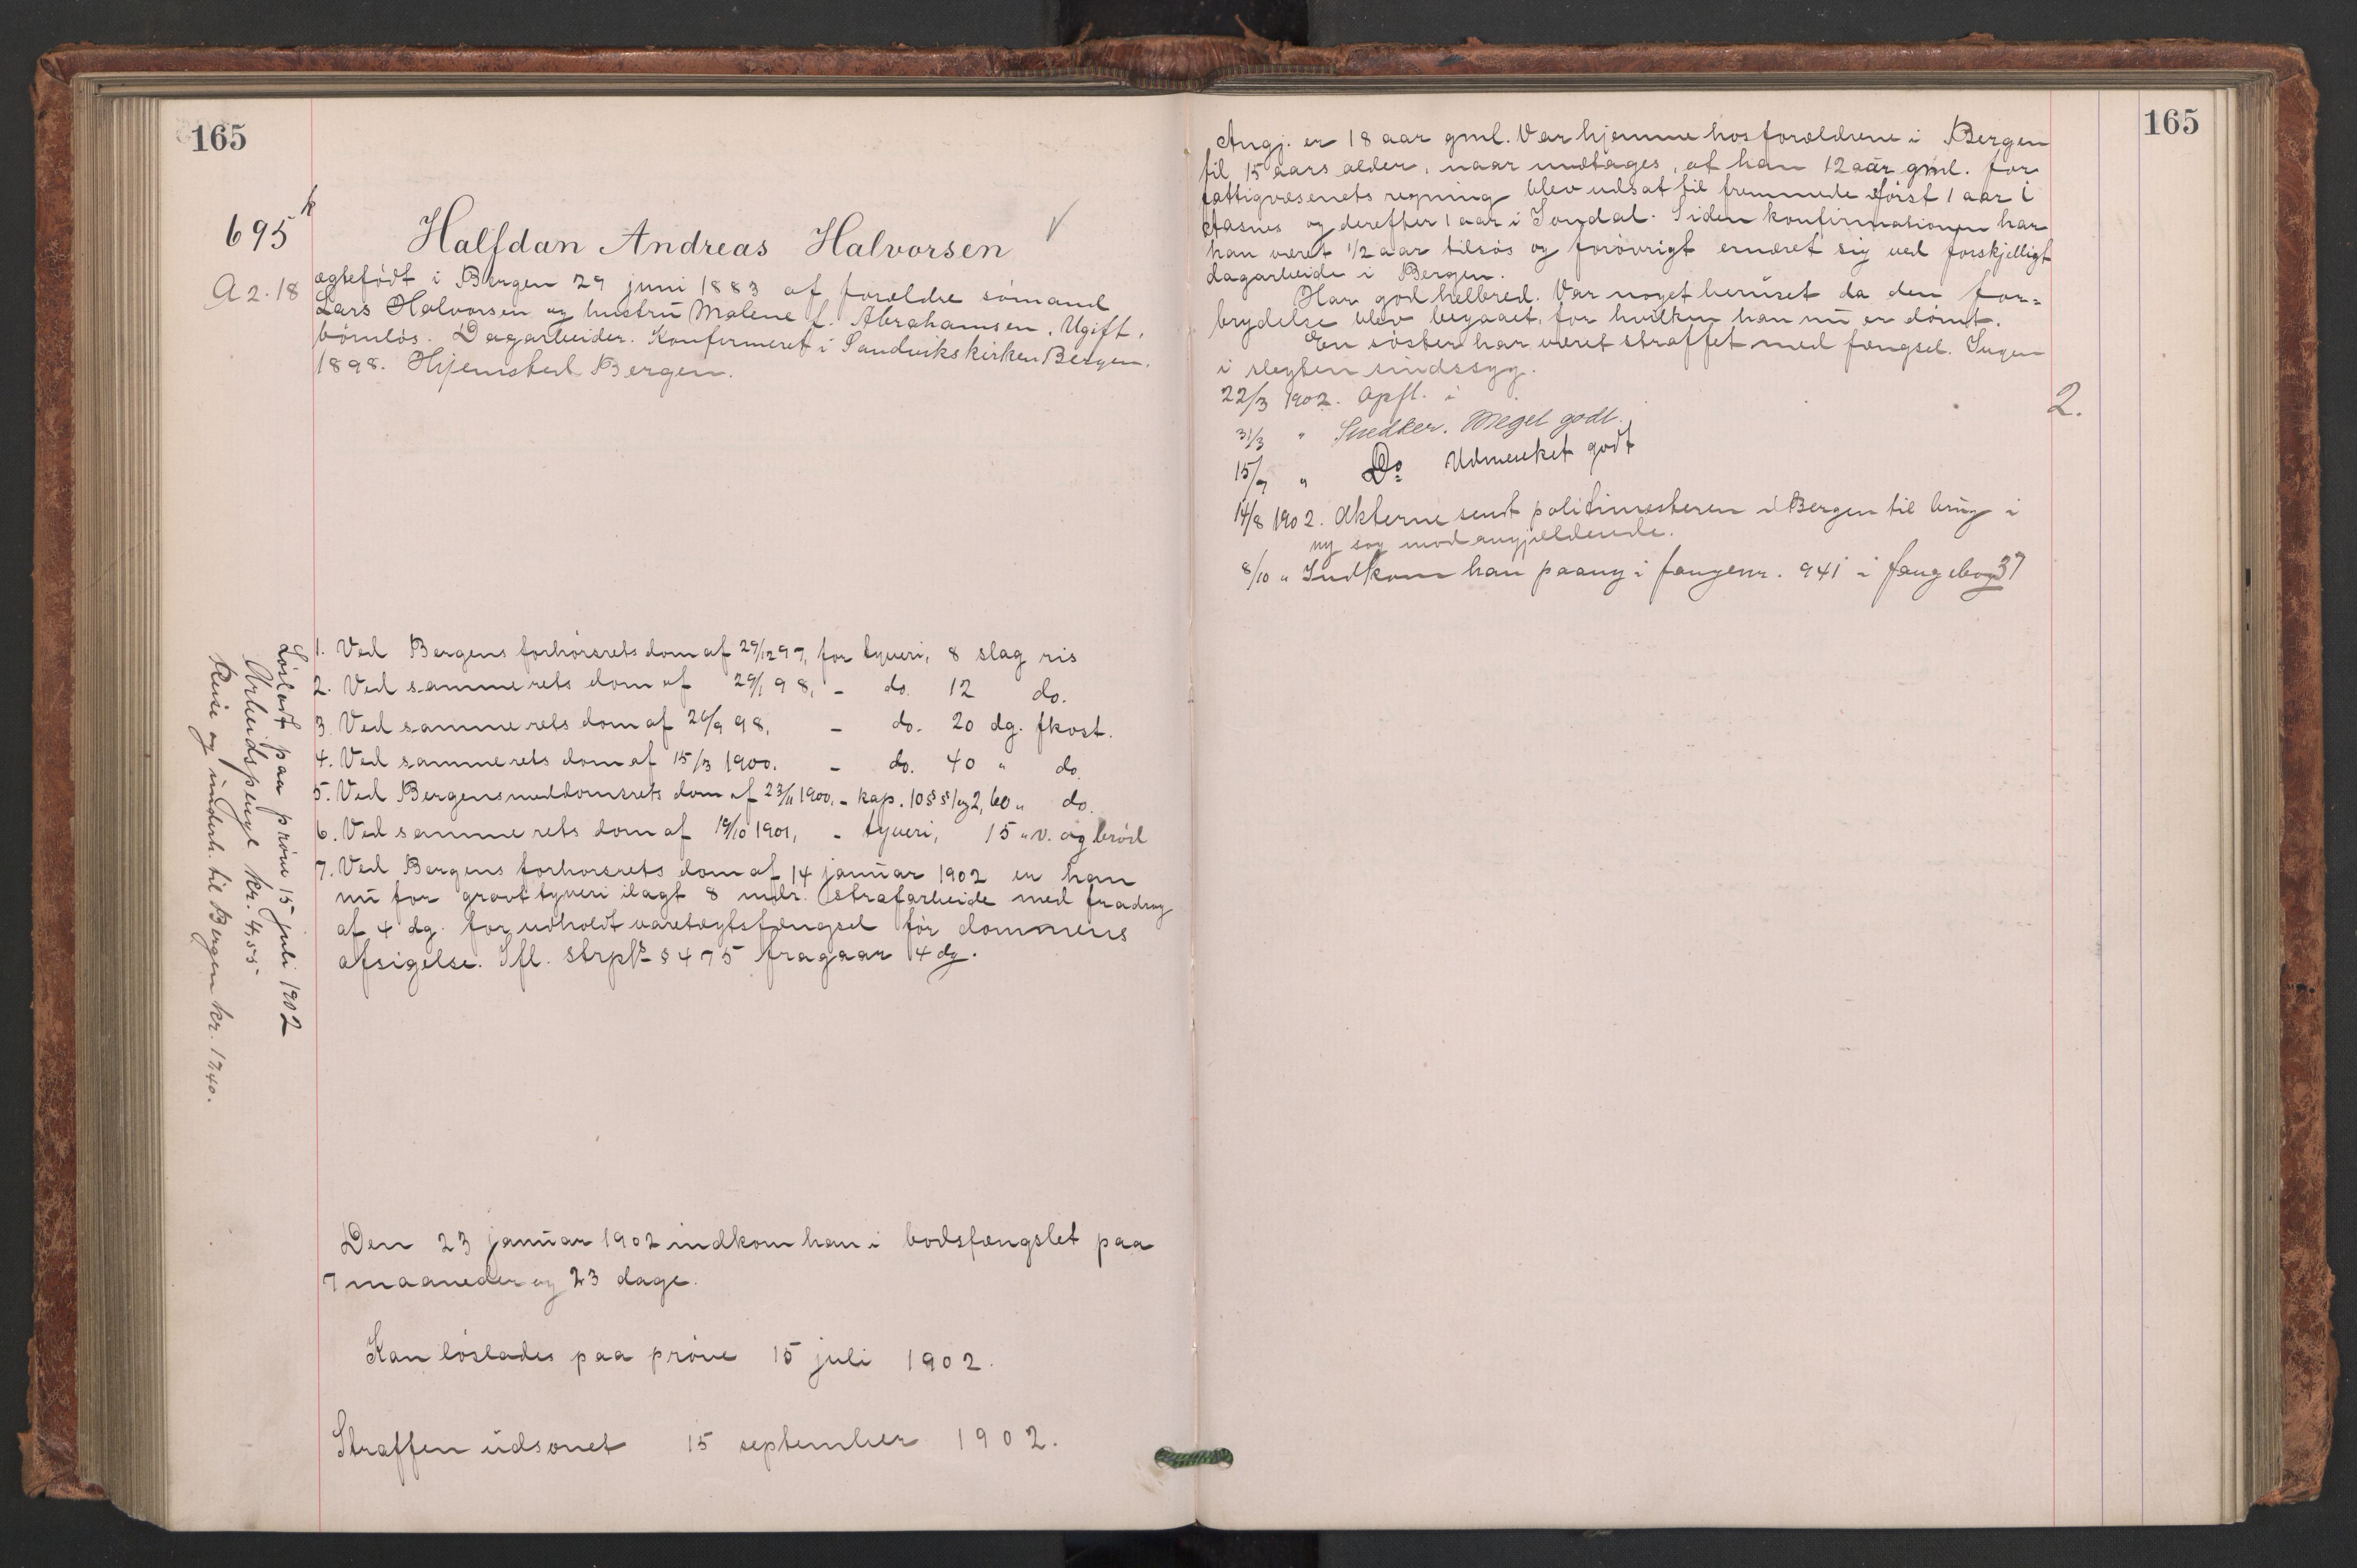 165
695 k
Halfdan Andreas Halvorsen ✓
A 2. 18
ægtefødt i Bergen 29 juni 1883 af forældre sømand
Lars Halvorsen og hustru Malene f. Abrahamsen. Ugift,
børnløs. Dagarbeider. Konfirmeret i Sandvikskirken Bergen.
1898. Hjemsted Bergen.
1. Ved Bergens forhørsrets dom af 29/12 97, for tyveri, 8 slag ris
2. Ved samme rets dom af 29/1 98, - do. 12 do.
3. Ved samme rets dom af 26/9 98, - do. 20 dg. fkost.
4. Ved samme rets dom af 15/3 1900. - do. 40 " do.
5. Ved Bergens meddomsrets dom af 23/11 1900, - kap. 10 §§ 1 og 2, 60 " do.
6. Ved samme rets dom af 19/10 1901, - tyveri, 15 " v. og brød
7. Ved Bergens forhørsrets dom af 14 januar 1902 er han
nu for grovt tyveri ilagt 8 mdr. strafarbeide med fradrag
af 4 dg. for udholdt varetægtsfængsel før dommens
afsigelse. Ifl. strpl § 475 fragaar 4 dg.
Løsladt paa prøve 15 juli 1902
Arbeidspenge kr. 4,55
Reise og underh. til Bergen kr. 17.40.
Den 23 januar 1902 indkom han i bodsfængslet paa
7 maaneder og 23 dage.
Kan løslades paa prøve 15 juli 1902.
Straffen udsonet 15 september 1902.
165
Angj. er 18 aar gml. Var hjemme hos forældrene i Bergen
til 15 aars alder, naar undtages, at han 12 aar gml. for
fattigvæsenets regning blev udsat til fremmede først 1 aar i
Aasnes og derefter 1 aar i Jondal. Siden konfirmationen har
han været 1/2 aar tilsøs og forøvrigt ernæret sig ved forskjelligt
dagarbeide i Bergen.
Har god helbred. Var noget beruset da den for=
brydelse blev begaaet, for hvilken han nu er dømt.
En søster har været straffet med fængsel. Ingen
i slegten sindssyg.
22/3 1902. Opfl. i 2.
31/3 " Snedker. Meget godt.
15/7 " Do Udmerket godt
14/8 1902. Akterne sendt politimesteren i Bergen til brug i
ny sag mod angjældende.
8/10 " Indkom han paany i fangenr. 941 i fangebog 37